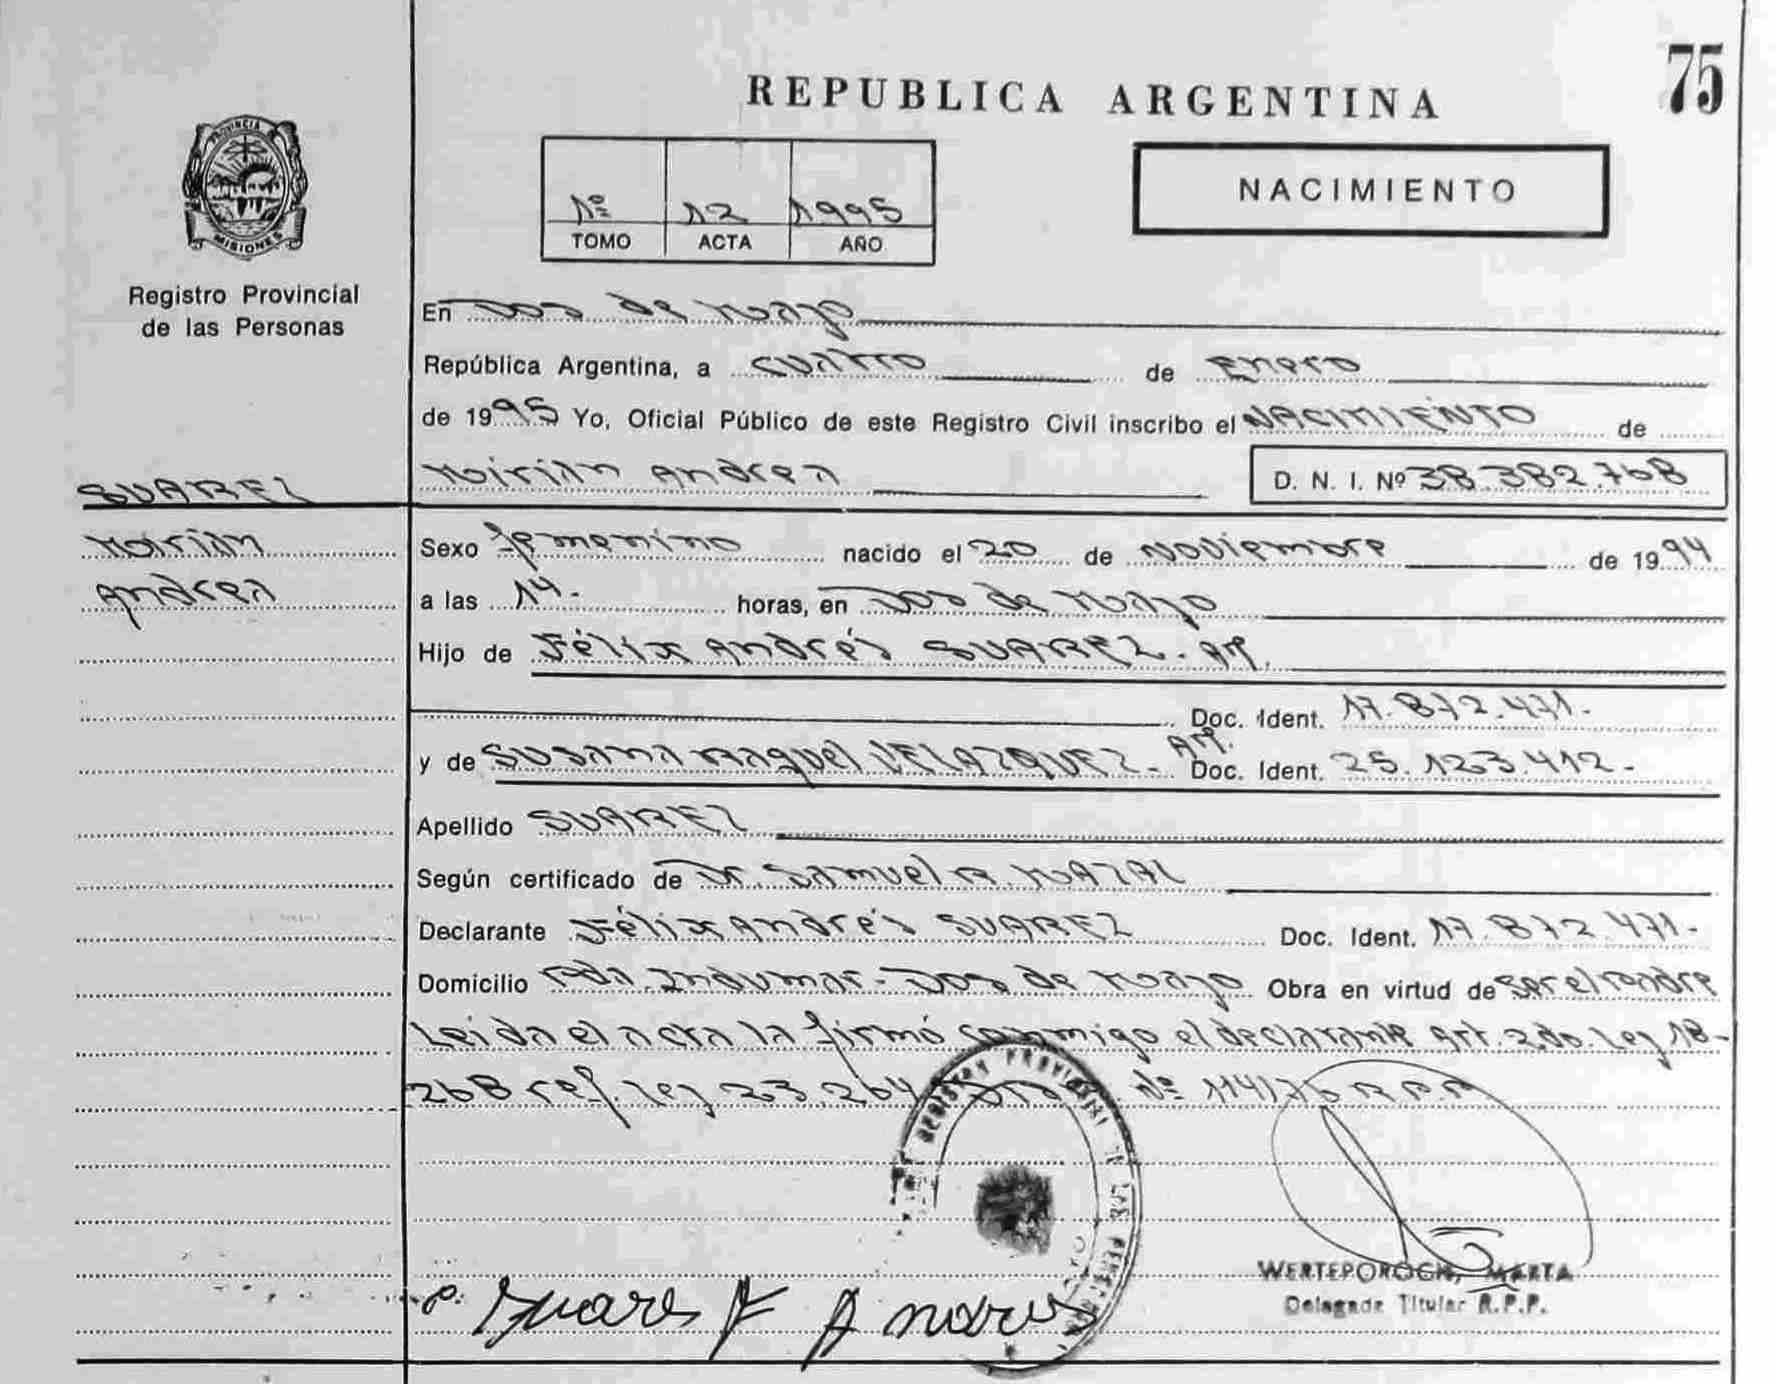 75
REPUBLICA ARGENTINA
PROVINCIA DE
MISIONES
Registro Provincial
de las Personas
Nº 12 1995
TOMO ACTA AÑO
NACIMIENTO
En Dos de Mayo
República Argentina, a cuatro de Enero
de 1995 Yo, Oficial Público de este Registro Civil inscribo el NACIMIENTO de
SUAREZ
Mirian Andrea
D. N. I. Nº 38.382.768
Mirian
Andrea
Sexo femenino nacido el 20 de Noviembre de 1994
a las 14.- horas, en Dos de Mayo
Hijo de Félix Andrés SUAREZ. Ar.
Doc. Ident. 17.872.471.-
y de Susana Raquel VELAZQUEZ.- Ar. Doc. Ident. 25.123.412.-
Apellido SUAREZ
Según certificado de Dr. Samuel R. MAZAL
Declarante Félix Andrés SUAREZ Doc. Ident. 17.872.471.-
Domicilio Pda. Indumar- Dos de Mayo Obra en virtud de ser el padre
Leida el acta la firmó conmigo el declarante Art. 2do. Ley 18-
268 ref. ley 23.264 Nº 114/76 R.P.P
REGISTRO PROVINCIAL DE LAS PERSONAS
WERTEPOROCH, MARTA
Delegada Titular R.P.P.
Suares F Andres